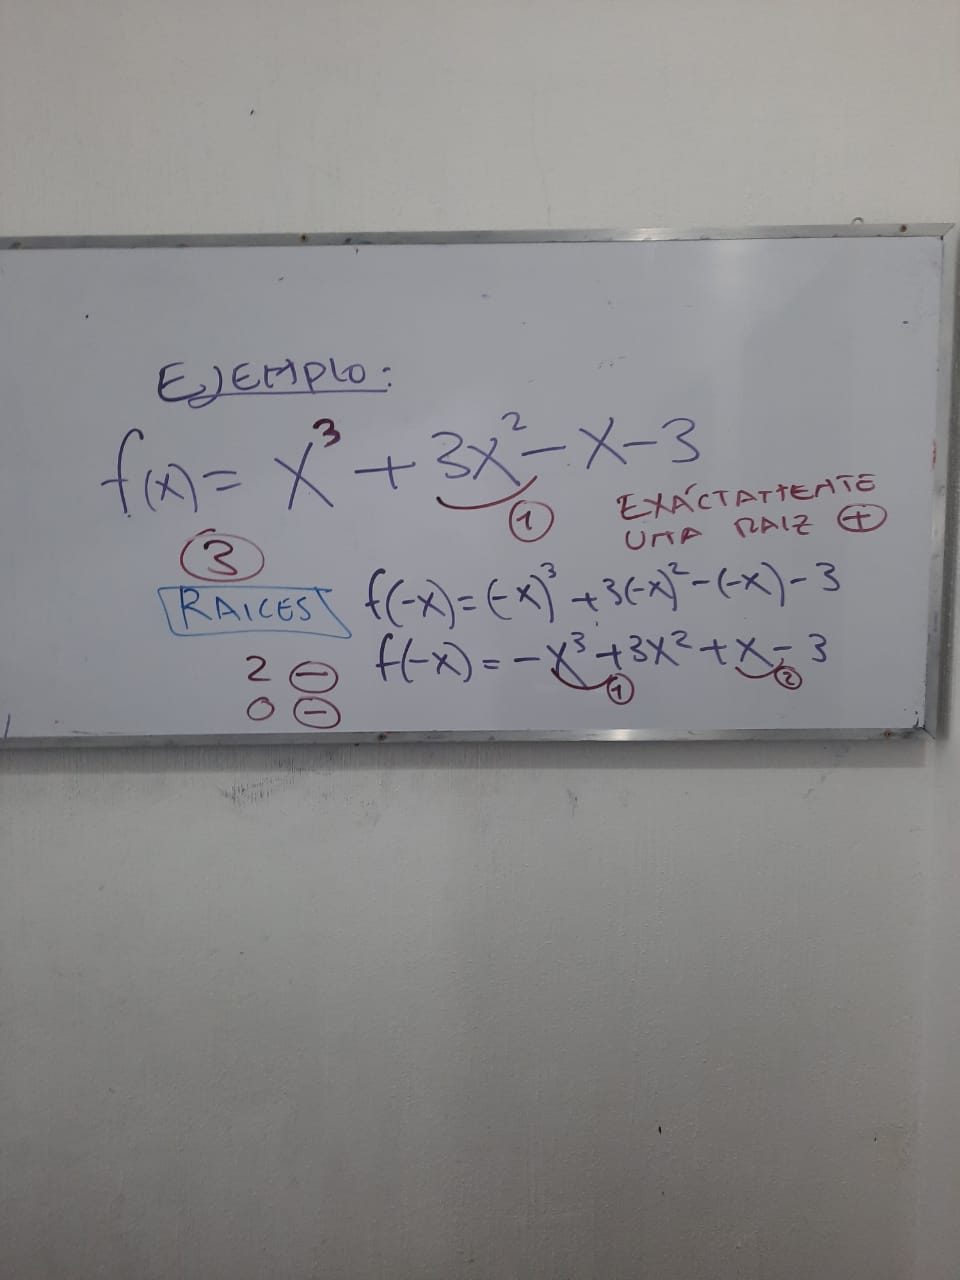 EJEMPLO:
f(x)= x³ + 3x² - x - 3
①
EXÁCTAMENTE
UNA RAIZ ⊕
③
RAICES
f(-x)=(-x)³ +3(-x)²-(-x)-3
f(-x) = -x³+3x²+x-3
① ②
2 ⊖
0 ⊖